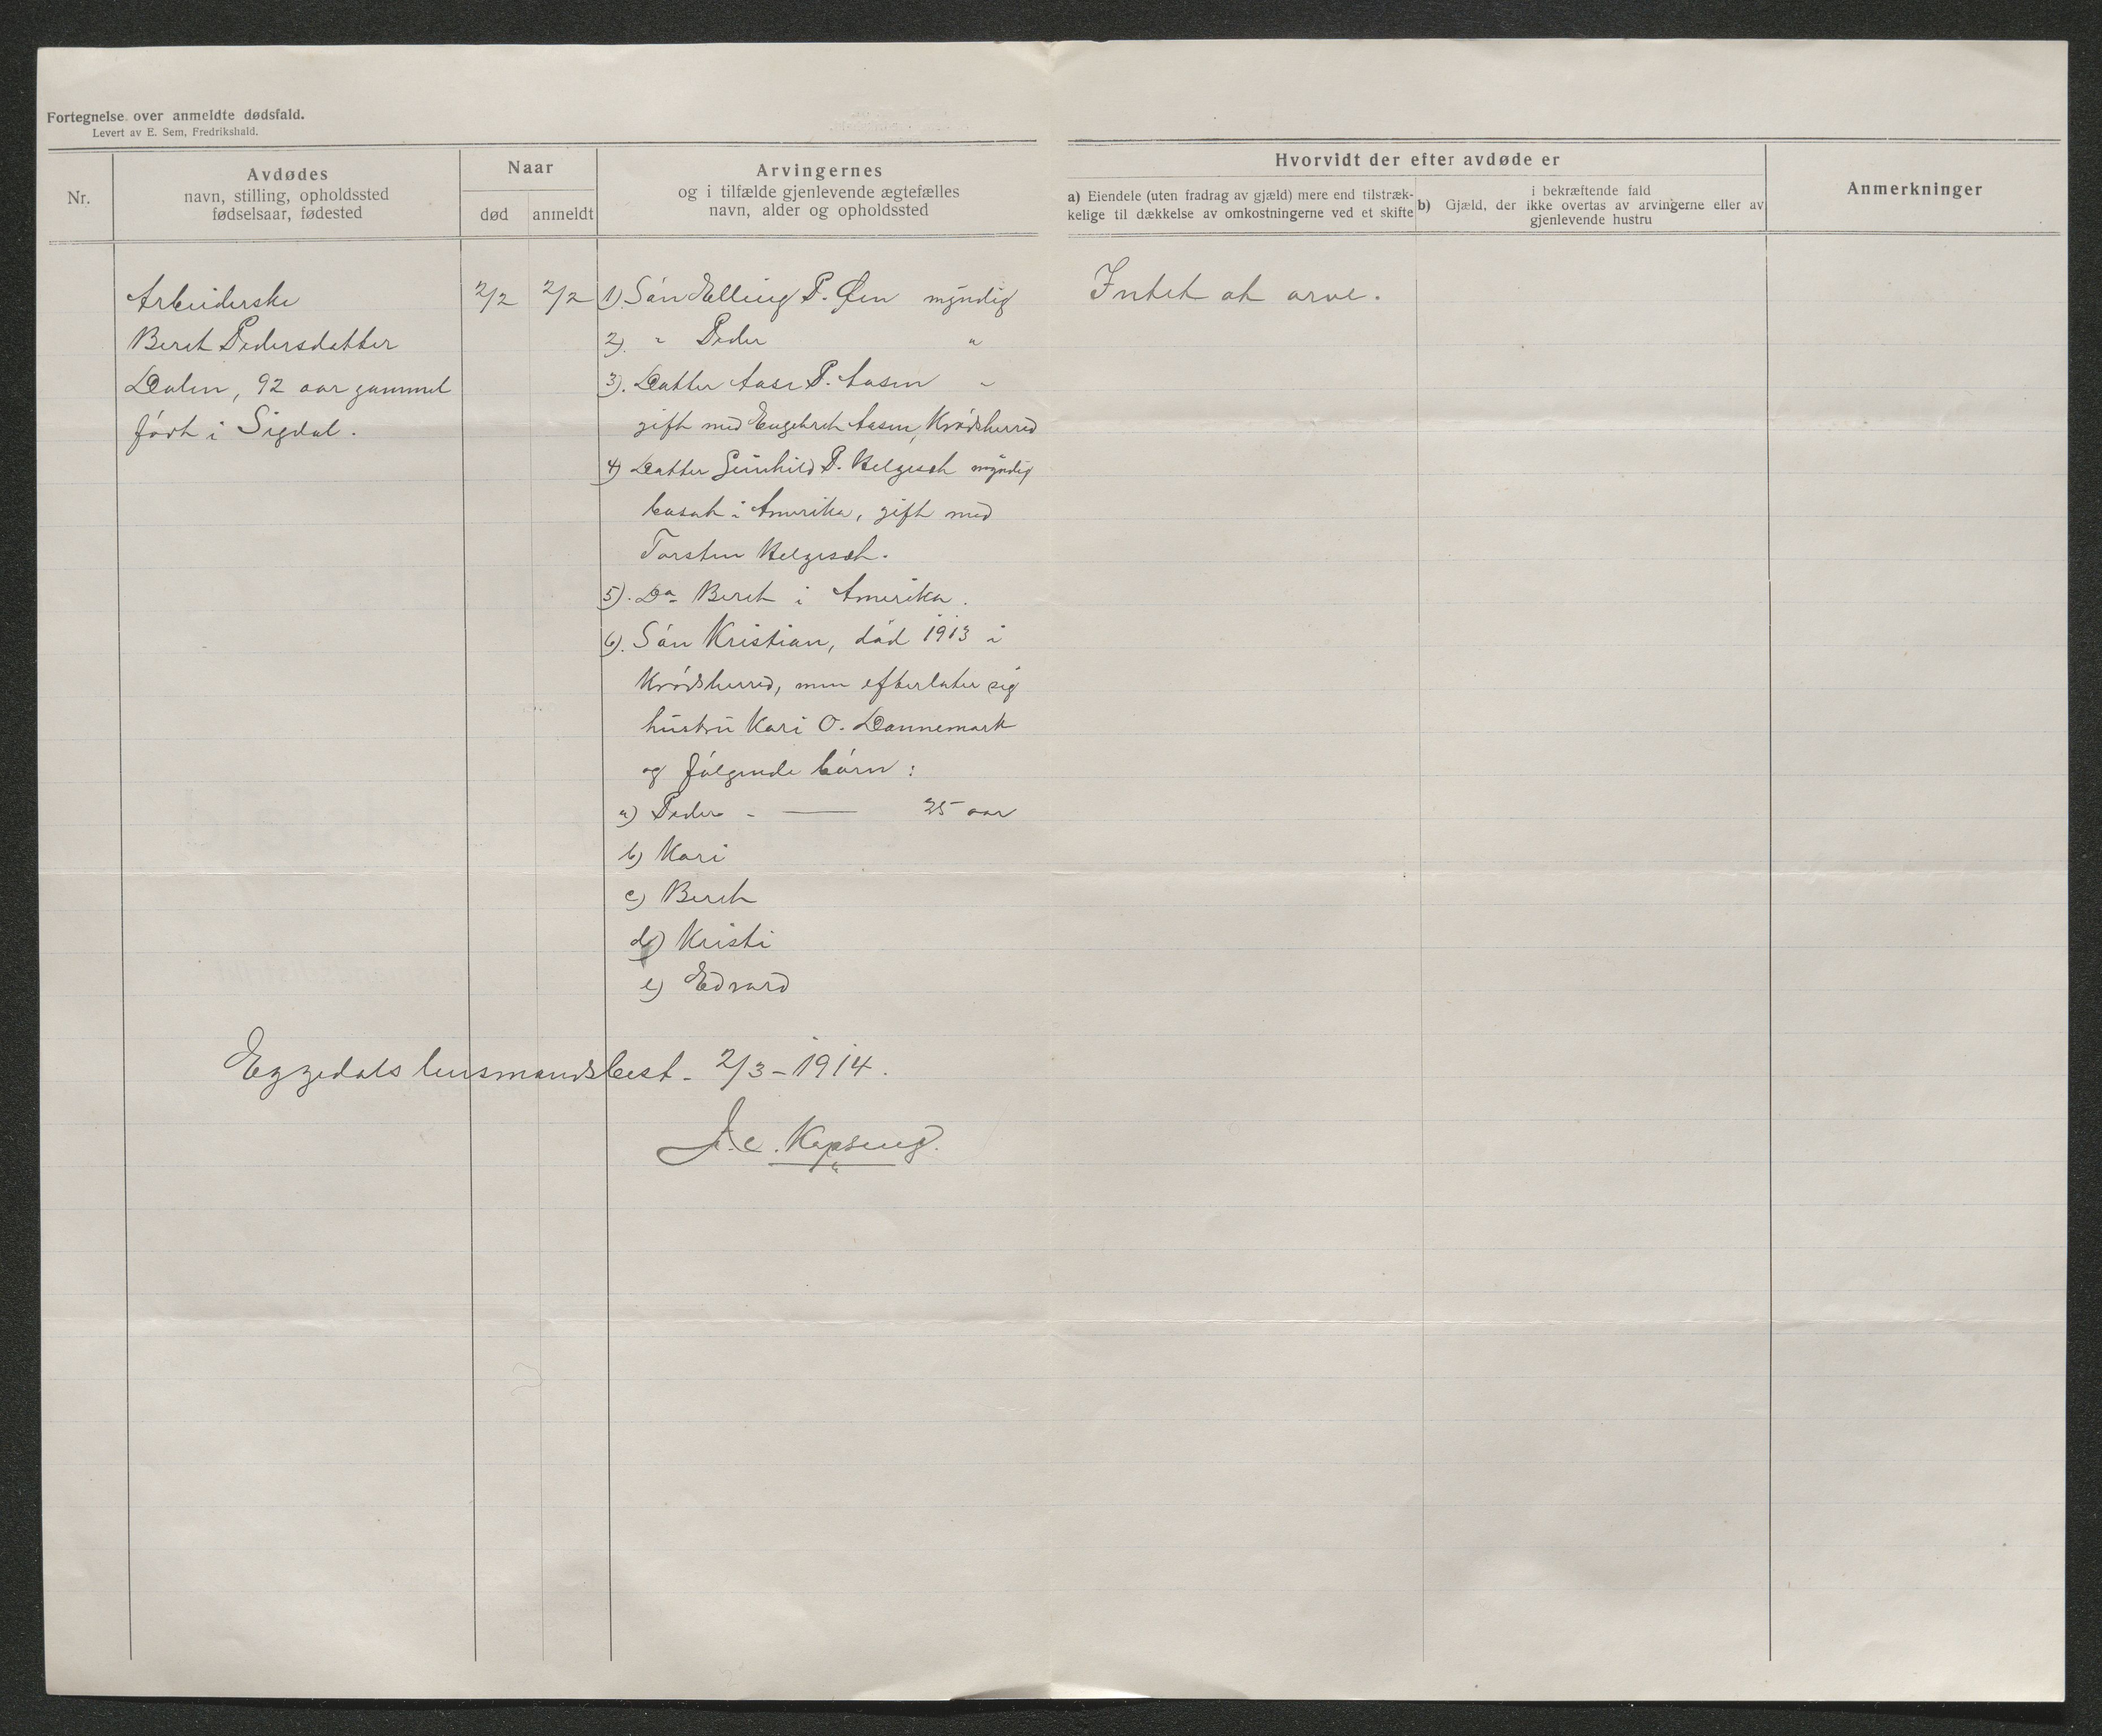 Fortegnelse over anmeldte dødsfald.
Levert av E. Sem, Fredrikshald.
Nr.
Avdødes
navn, stilling, opholdssted
fødselsaar, fødested
Naar
død
anmeldt
Arvingernes
og i tilfælde gjenlevende ægtefælles
navn, alder og opholdssted
Hvorvidt der efter avdøde er
a) Eiendele (uten fradrag av gjæld) mere end tilstræk-
kelige til dækkelse av omkostningerne ved et skifte
i bekræftende fald
b) Gjæld, der ikke overtas av arvingerne eller av
gjenlevende hustru
Anmerkninger
Arbeiderske
Beret Pedersdatter
Dalen, 92 aar gammel
født i Sigdal.
2/2
2/2
1) Søn Elling P. Øen myndig
2). " Peder "
3). Datter Aase P. Aasen "
gift med Engebret Aasen, Krødsherred
4) Datter Gunhild P. Helgeset myndig
bosat i Amerika, gift med
Torsten Helgeset.
5). Do Beret i Amerika.
6). Søn Kristian, død 1913 i
Krødsherred, men efterlater sig
hustru Kari O. Dannemark
og følgende børn:
a) Peder - — 25 aar
b) Kari
c) Beret
d) Kristi
e) Edvard
Intet at arve.
Eggedals lensmandsbest. 2/3-1914.